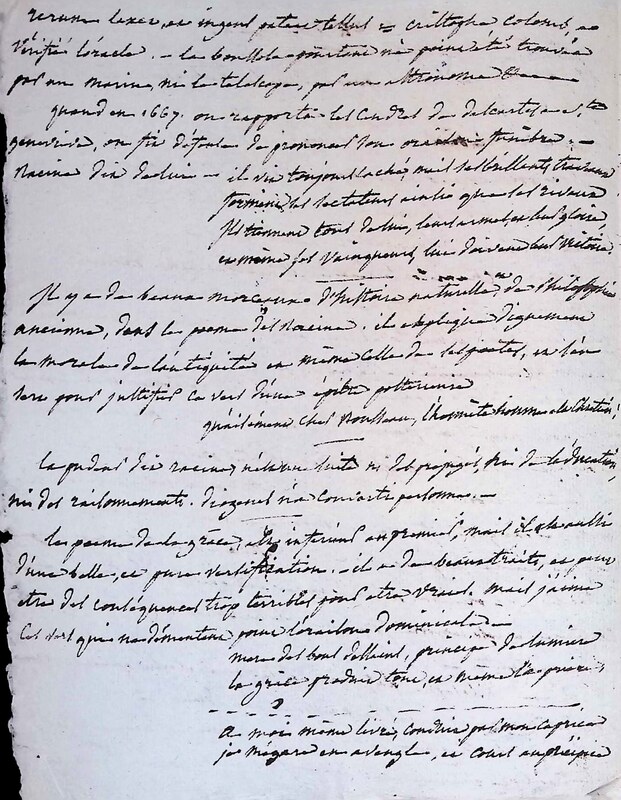 rerum laxet, et ingens pateat tellus = cristophe colomb, a
vérifié l'oracle. - la boussole na point été trouvée
par un marin, ni le telescope, par un astronome
quand en 1667. on rapporta les cendres de descartes a ste
genevieve, on fit défense de prononcer son oraison funèbre. -
Racine dit de lui -
il vit toujours caché, mais ses brillants travaux
forment ses sectateurs ainsi que ses rivaux
ils tiennent tous de lui, leurs armes, et leur gloire,
et même ses vainqueurs, lui doivent leur victoire.
Il y a de beaux morceaux d'histoire naturelle, de Philosophie
ancienne, dans le poeme de Racine. il explique dignement
la morale de l'antiquité et même celle de ses poetes, et l'on
sera pour justifier ce vers d'une épitre posterieure
qu'aisément chez Rousseau, l'honnête homme est chrétien,
la pudeur dit racine, n'est une suite ni des préjugés, ni de l'éducation,
ni des raisonnements. diogenes n'a converti personne. -
le poeme de la grâce, est inferieur au premier, mais il est aussi
d'une belle, et pure versification. - il a de beaux traits, et peut
etre des conséquences trop terribles pour etre vraies. mais j'aime
ces vers qui ne démentent point l'oraison dominicale -
mere des bons desseins, principe de lumiere
la grâce produit tout, et même la priere,
a moi même livré, conduit par mon caprice
je m'égare en aveugle, et cours au précipice